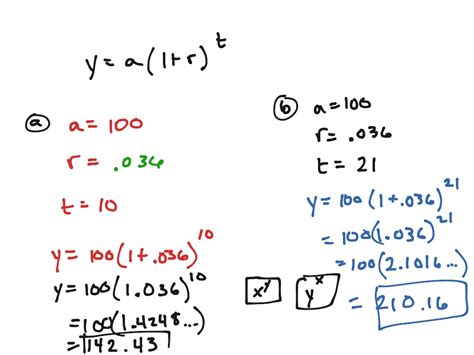 y = a(1+r)^t
(a) a = 100
r = .036
t = 10
y = 100(1+.036)^10
y = 100(1.036)^10
= 100(1.4248...)
= 142.43
(b) a = 100
r = .036
t = 21
y = 100(1+.036)^21
= 100(1.036)^21
= 100(2.1016...)
= 210.16
x^y y^x